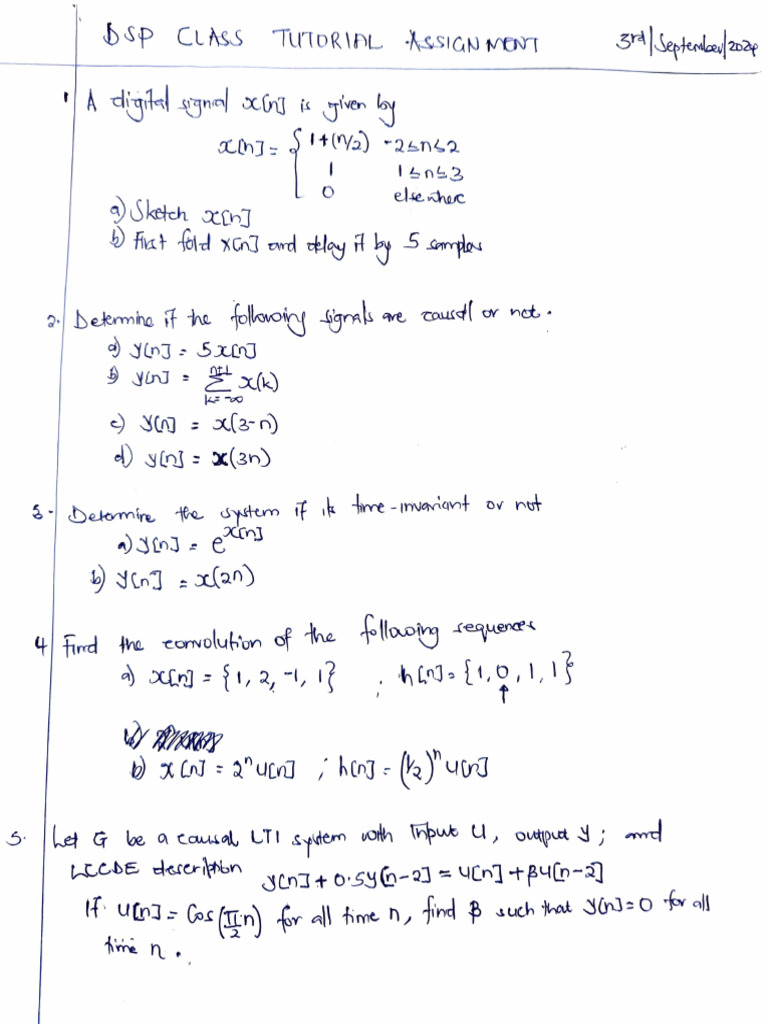 DSP CLASS TUTORIAL ASSIGNMENT 3rd/September/2024
1 A digital signal x[n] is given by
x[n] = { 1+(n/2) -2≤n≤2
1 1≤n≤3
0 elsewhere
a) Sketch x[n]
b) First fold x[n] and delay it by 5 samples
2. Determine if the following signals are causal or not.
a) y[n] = 5x[n]
b) y[n] = n+1 Σ k=-∞ x(k)
c) y[n] = x(3-n)
d) y[n] = x(3n)
3. Determine the system if its time-invariant or not
a) y[n] = e^x[n]
b) y[n] = x(2n)
4 Find the convolution of the following sequences
a) x[n] = {1, 2, -1, 1} ; h[n] = {1, 0, 1, 1}
↑
b) x[n] = 2^n u[n] ; h[n] = (1/2)^n u[n]
5. Let G be a causal LTI system with Input u, output y; and
LCCDE description y[n] + 0.5y[n-2] = u[n] + βu[n-2]
If u[n] = Cos(π/2 n) for all time n, find β such that y[n]=0 for all
time n.